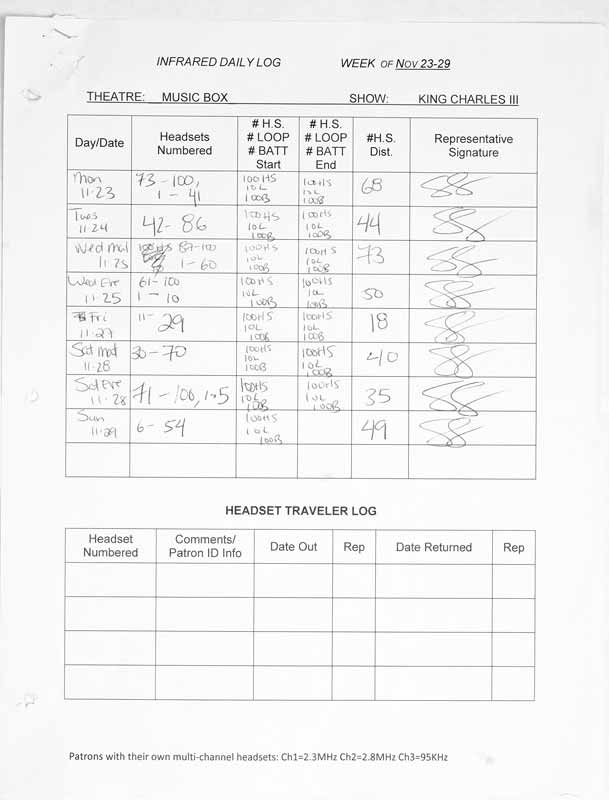 INFRARED DAILY LOG WEEK OF NOV 23-29
THEATRE: MUSIC BOX SHOW: KING CHARLES III
Day/Date Headsets Numbered # H.S. # LOOP # BATT Start # H.S. # LOOP # BATT End #H.S. Dist. Representative Signature
Mon 11-23 73-100, 1-41 100HS 10L 100B 100HS 10L 100B 68
Tues 11-24 42-86 100HS 10L 100B 100HS 10L 100B 44
Wed Mat 11-25 87-100 1-60 100HS 10L 100B 100HS 10L 100B 73
Wed Eve 11-25 61-100 1-10 100HS 10L 100B 100HS 10L 100B 50
Fri 11-27 11-29 100HS 10L 100B 100HS 10L 100B 18
Sat Mat 11-28 30-70 100HS 10L 100B 100HS 10L 100B 40
Sat Eve 11-28 71-100, 1-5 100HS 10L 100B 100HS 10L 100B 35
Sun 11-29 6-54 100HS 10L 100B 49
HEADSET TRAVELER LOG
Headset Numbered Comments/ Patron ID Info Date Out Rep Date Returned Rep
Patrons with their own multi-channel headsets: Ch1=2.3MHz Ch2=2.8MHz Ch3=95KHz